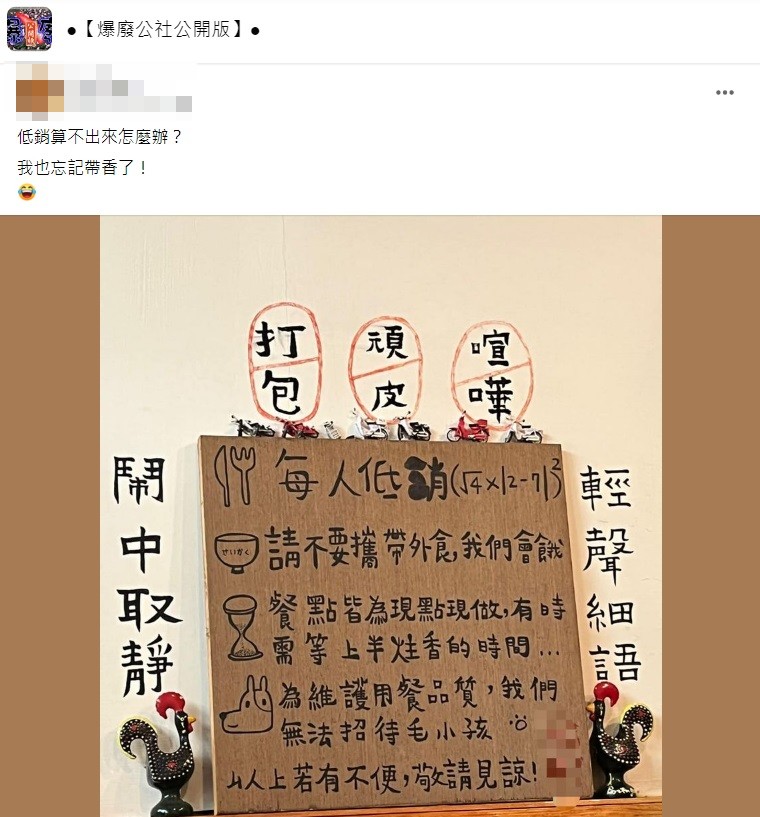 ●【爆廢公社公開版】●
低銷算不出來怎麼辦？
我也忘記帶香了！
打包
頑皮
喧嘩
鬧中取靜
每人低銷(√4×|2-7|)²
せいかく
請不要攜帶外食,我們會餓
餐點皆為現點現做,有時
需等上半炷香的時間...
為維護用餐品質,我們
無法招待毛小孩
以上若有不便,敬請見諒!
輕聲細語